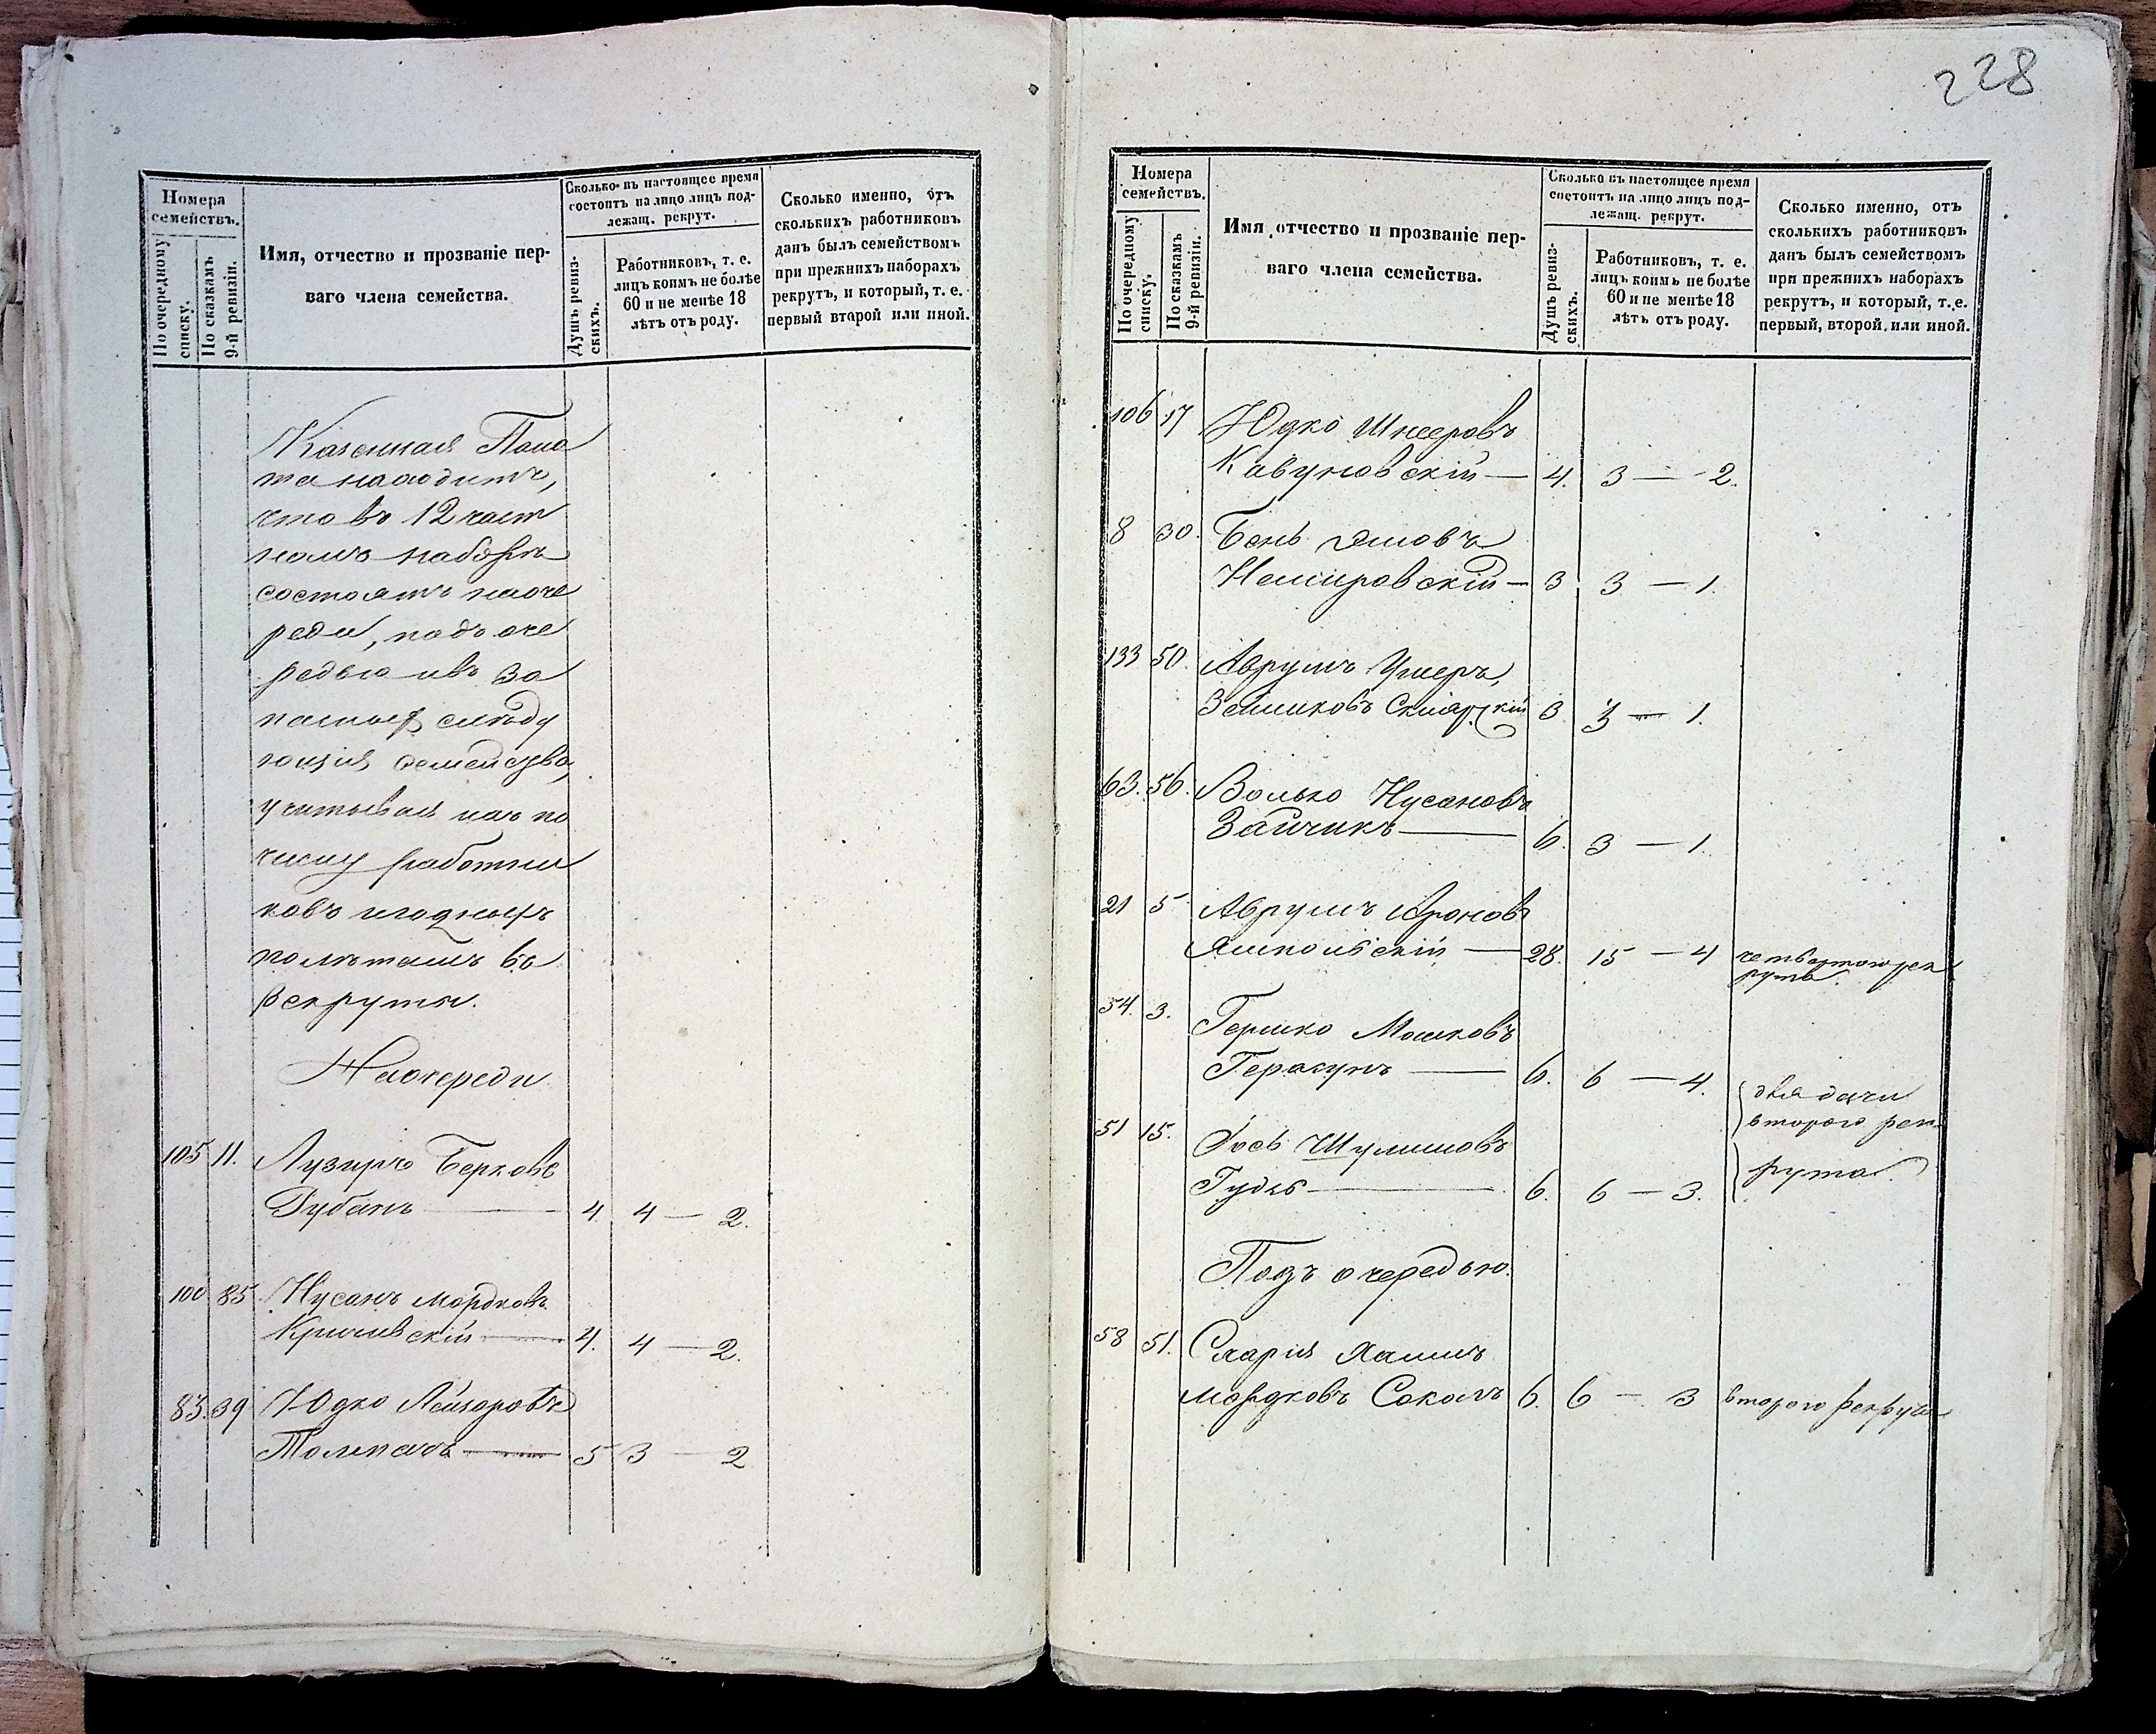 228
Номера
семействъ.
По очередному
списку.
По сказкамъ
9-й ревизіи.
Имя, отчество и прозваніе пер-
ваго члена семейства.
Сколько въ настоящее время
состоитъ на лицо лицъ под-
лежащ. рекрут.
Душъ ревиз-
скихъ.
Работниковъ, т. е.
лицъ коимъ не болѣе
60 и не менѣе 18
лѣтъ отъ роду.
Сколько именно, отъ
сколькихъ работниковъ
данъ былъ семействомъ
при прежнихъ наборахъ
рекрутъ, и который, т. е.
первый второй или иной.
Казенная Пала
та находитъ,
что въ 12 част
номъ наборѣ
состоятъ на оче
реди, подъ оче
редью и въ за
пасныхъ слѣду
ющія семейства,
учитывая ихъ по
числу работни
ковъ и годныхъ
по лѣтамъ въ
рекруты.
На очереди
105 11. Лузиръ Берковъ
Губанъ — 4. 4 — 2.
100 85. Нусанъ Мордковъ
Кричевскій — 4. 4 — 2.
83. 39 Юдко Лейзоровъ
Толмачъ — 5 3 — 2
Номера
семействъ.
По очередному
списку.
По сказкамъ
9-й ревизіи.
Имя отчество и прозваніе пер-
ваго члена семейства.
Сколько въ настоящее время
состоитъ на лицо лицъ под-
лежащ. рекрут.
Душъ ревиз-
скихъ.
Работниковъ, т. е.
лицъ коимъ не болѣе
60 и не менѣе 18
лѣтъ отъ роду.
Сколько именно, отъ
сколькихъ работниковъ
данъ былъ семействомъ
при прежнихъ наборахъ
рекрутъ, и который, т. е.
первый, второй или иной.
106 17 Юдко Шнееровъ
Кавуновскій — 4. 3 — 2.
8 30. Бень
Немировскій — 3 3 — 1.
133 50. Аврумъ Ушеръ,
Зельмковъ 3. 3 — 1.
63. 56. Волько Нусановъ
Зайчикъ — 6. 3 — 1.
21 5 Аврумъ Ароновъ
Ямпольскій — 28. 15 — 4 четвертого рек
рута.
54. 3. Гершко Мошковъ
Герасунъ — 6. 6 — 4.
для дачи
второго рек
51 15. Іось Шулимовъ
Гудзь — 6. 6 — 3. рута.
Подъ очередью.
58 51. Схарія Хаимъ
Мордковъ Соколъ 6. 6 — 3 второго рекрута